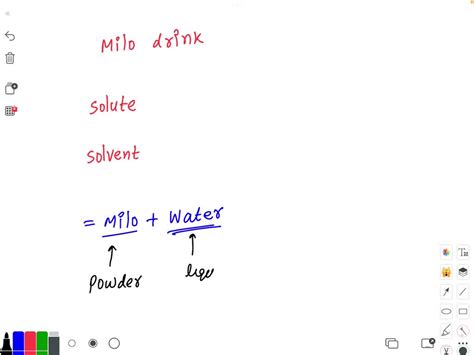 Milo drink
Solute
Solvent
= Milo + Water
Powder